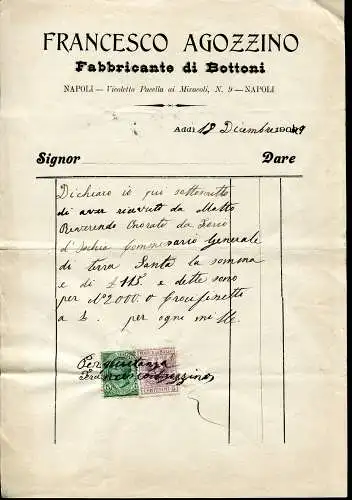 FRANCESCO AGOZZINO
Fabbricante di Bottoni
NAPOLI — Vicoletto Pacella ai Miracoli, N. 9 — NAPOLI
Addì 18 Dicembre 190
Signor Dare
Dichiaro io qui sottoscritto
di aver ricevuto da Molto
Reverendo Onorato da Forio
d'Ischia Commissario Generale
di terra Santa la somma
e di £ 115 e dette sono
per N° 2000
a £. per ogni
Per quietanza
Francesco Agozzino